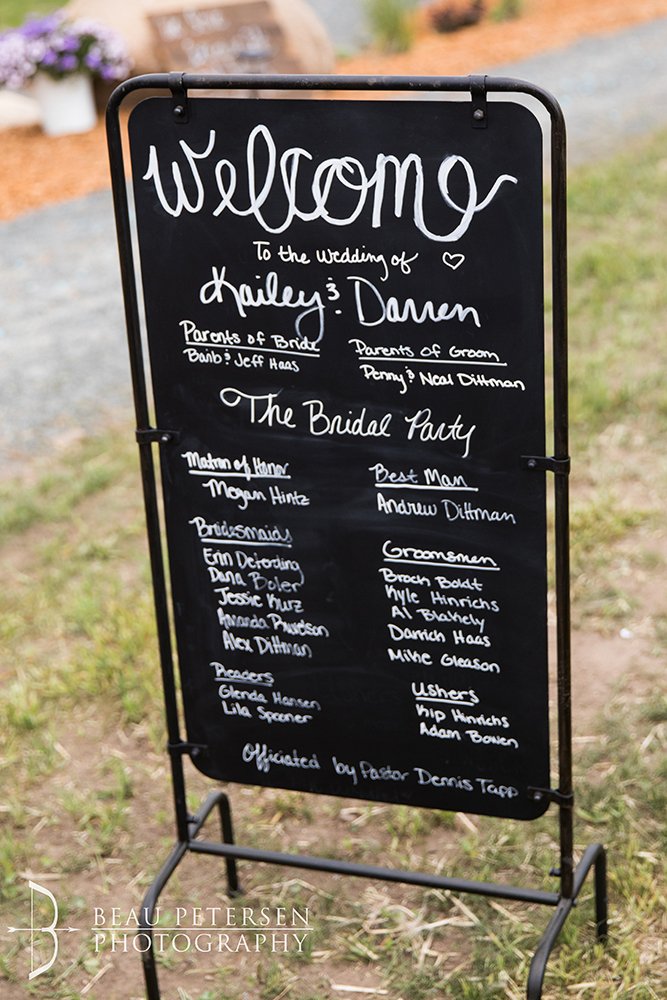 Welcome
To the wedding of ♡
Kailey & Darren
Parents of Bride
Barb & Jeff Haas
Parents of Groom
Penny & Neal Dittman
The Bridal Party
Matron of Honor
Megan Hintz
Best Man
Andrew Dittman
Bridesmaids
Erin
Dana Boler
Jessie Kurz
Amanda
Alex Dittman
Groomsmen
Brock Boldt
Kyle Hinrichs
Al Blakely
Darrich Haas
Mike Gleason
Readers
Glenda Hansen
Lila Spooner
Ushers
Kip Hinrichs
Adam Bowen
Officiated by Pastor Dennis Tapp
B
BEAU PETERSEN
PHOTOGRAPHY